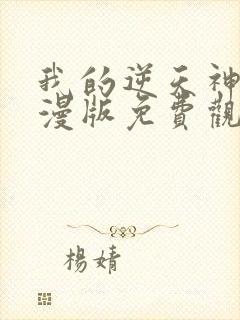 我的逆天神
漫版免費觀
楊婧